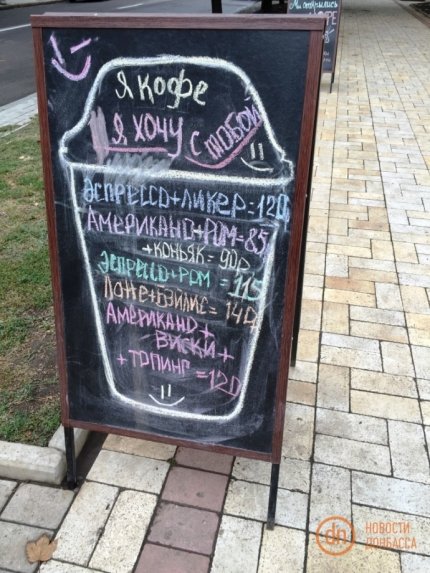 Мы открылись
КОФЕ
Я КОФЕ
Я ХОЧУ
С ТОБОЙ
ЭСПРЕССО+ЛИКЕР=120
АМЕРИКАНО+РОМ=85
+КОНЬЯК=90
ЭСПРЕССО+РОМ =115
+БЭЙЛИС=140
АМЕРИКАНО+
ВИСКИ+
+ТОПИНГ=120
dn НОВОСТИ
ДОНБАССА